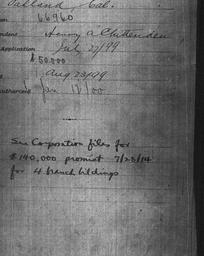 Oakland Cal.
66960
Henry A Chittenden
Application July 27/99
$50,000
Aug 23/99
Jan 12/00
See Corporation files for
$140,000 promist 7/25/14
for 4 branch bildings